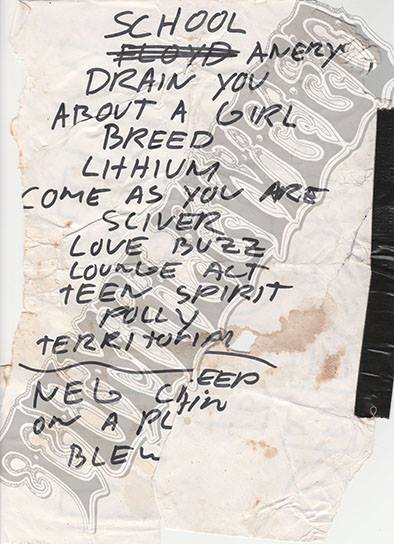 SCHOOL
FLOYD ANERY
DRAIN YOU
ABOUT A GIRL
BREED
LITHIUM
COME AS YOU ARE
SLIVER
LOVE BUZZ
LOUNGE ACT
TEEN SPIRIT
POLLY
TERRITORIAL
NEG CREEP
ON A PLAIN
BLEW